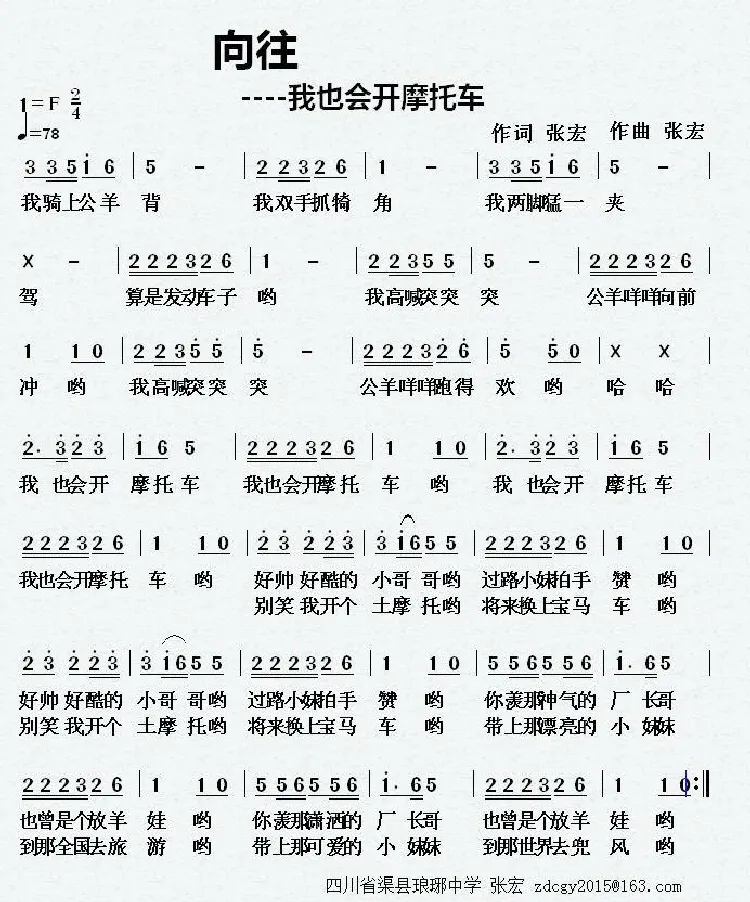 向往
----我也会开摩托车
1=F 2/4
♩=78
作词 张宏 作曲 张宏
3 3 5 i 6 | 5 - | 2 2 3 2 6 | 1 - | 3 3 5 i 6 | 5 - |
我骑上公羊 背 我双手抓犄 角 我两脚猛一 夹
X - | 2 2 2 3 2 6 | 1 - | 2 2 3 5 5 | 5 - | 2 2 2 3 2 6 |
驾 算是发动车子 哟 我高喊突突 突 公羊咩咩向前
1 1 0 | 2 2 3 5 5 | 5 - | 2 2 2 3 2 6 | 5 5 0 | X X |
冲 哟 我高喊突突 突 公羊咩咩跑得 欢 哟 哈 哈
2. 3 2 3 | i 6 5 | 2 2 2 3 2 6 | 1 1 0 | 2. 3 2 3 | i 6 5 |
我 也会开 摩托车 我也会开摩托 车 哟 我 也会开 摩托车
2 2 2 3 2 6 | 1 1 0 | 2 3 2 2 3 | 3 i 6 5 5 | 2 2 2 3 2 6 | 1 1 0 |
我也会开摩托 车 哟 好帅 好酷的 小哥 哥哟 过路小妹拍手 赞 哟
别笑 我开个 土摩 托哟 将来换上宝马 车 哟
2 3 2 2 3 | 3 i 6 5 5 | 2 2 2 3 2 6 | 1 1 0 | 5 5 6 5 5 6 | i. 6 5 |
好帅 好酷的 小哥 哥哟 过路小妹拍手 赞 哟 你羡那神气的 厂 长哥
别笑 我开个 土摩 托哟 将来换上宝马 车 哟 带上那漂亮的 小 妹妹
2 2 2 3 2 6 | 1 1 0 | 5 5 6 5 5 6 | i. 6 5 | 2 2 2 3 2 6 | 1 1 0 :||
也曾是个放羊 娃 哟 你羡那潇洒的 厂 长哥 也曾是个放羊 娃 哟
到那全国去旅 游 哟 带上那可爱的 小 妹妹 到那世界去兜 风 哟
四川省渠县琅琊中学 张宏 zdcgy2015@163.com